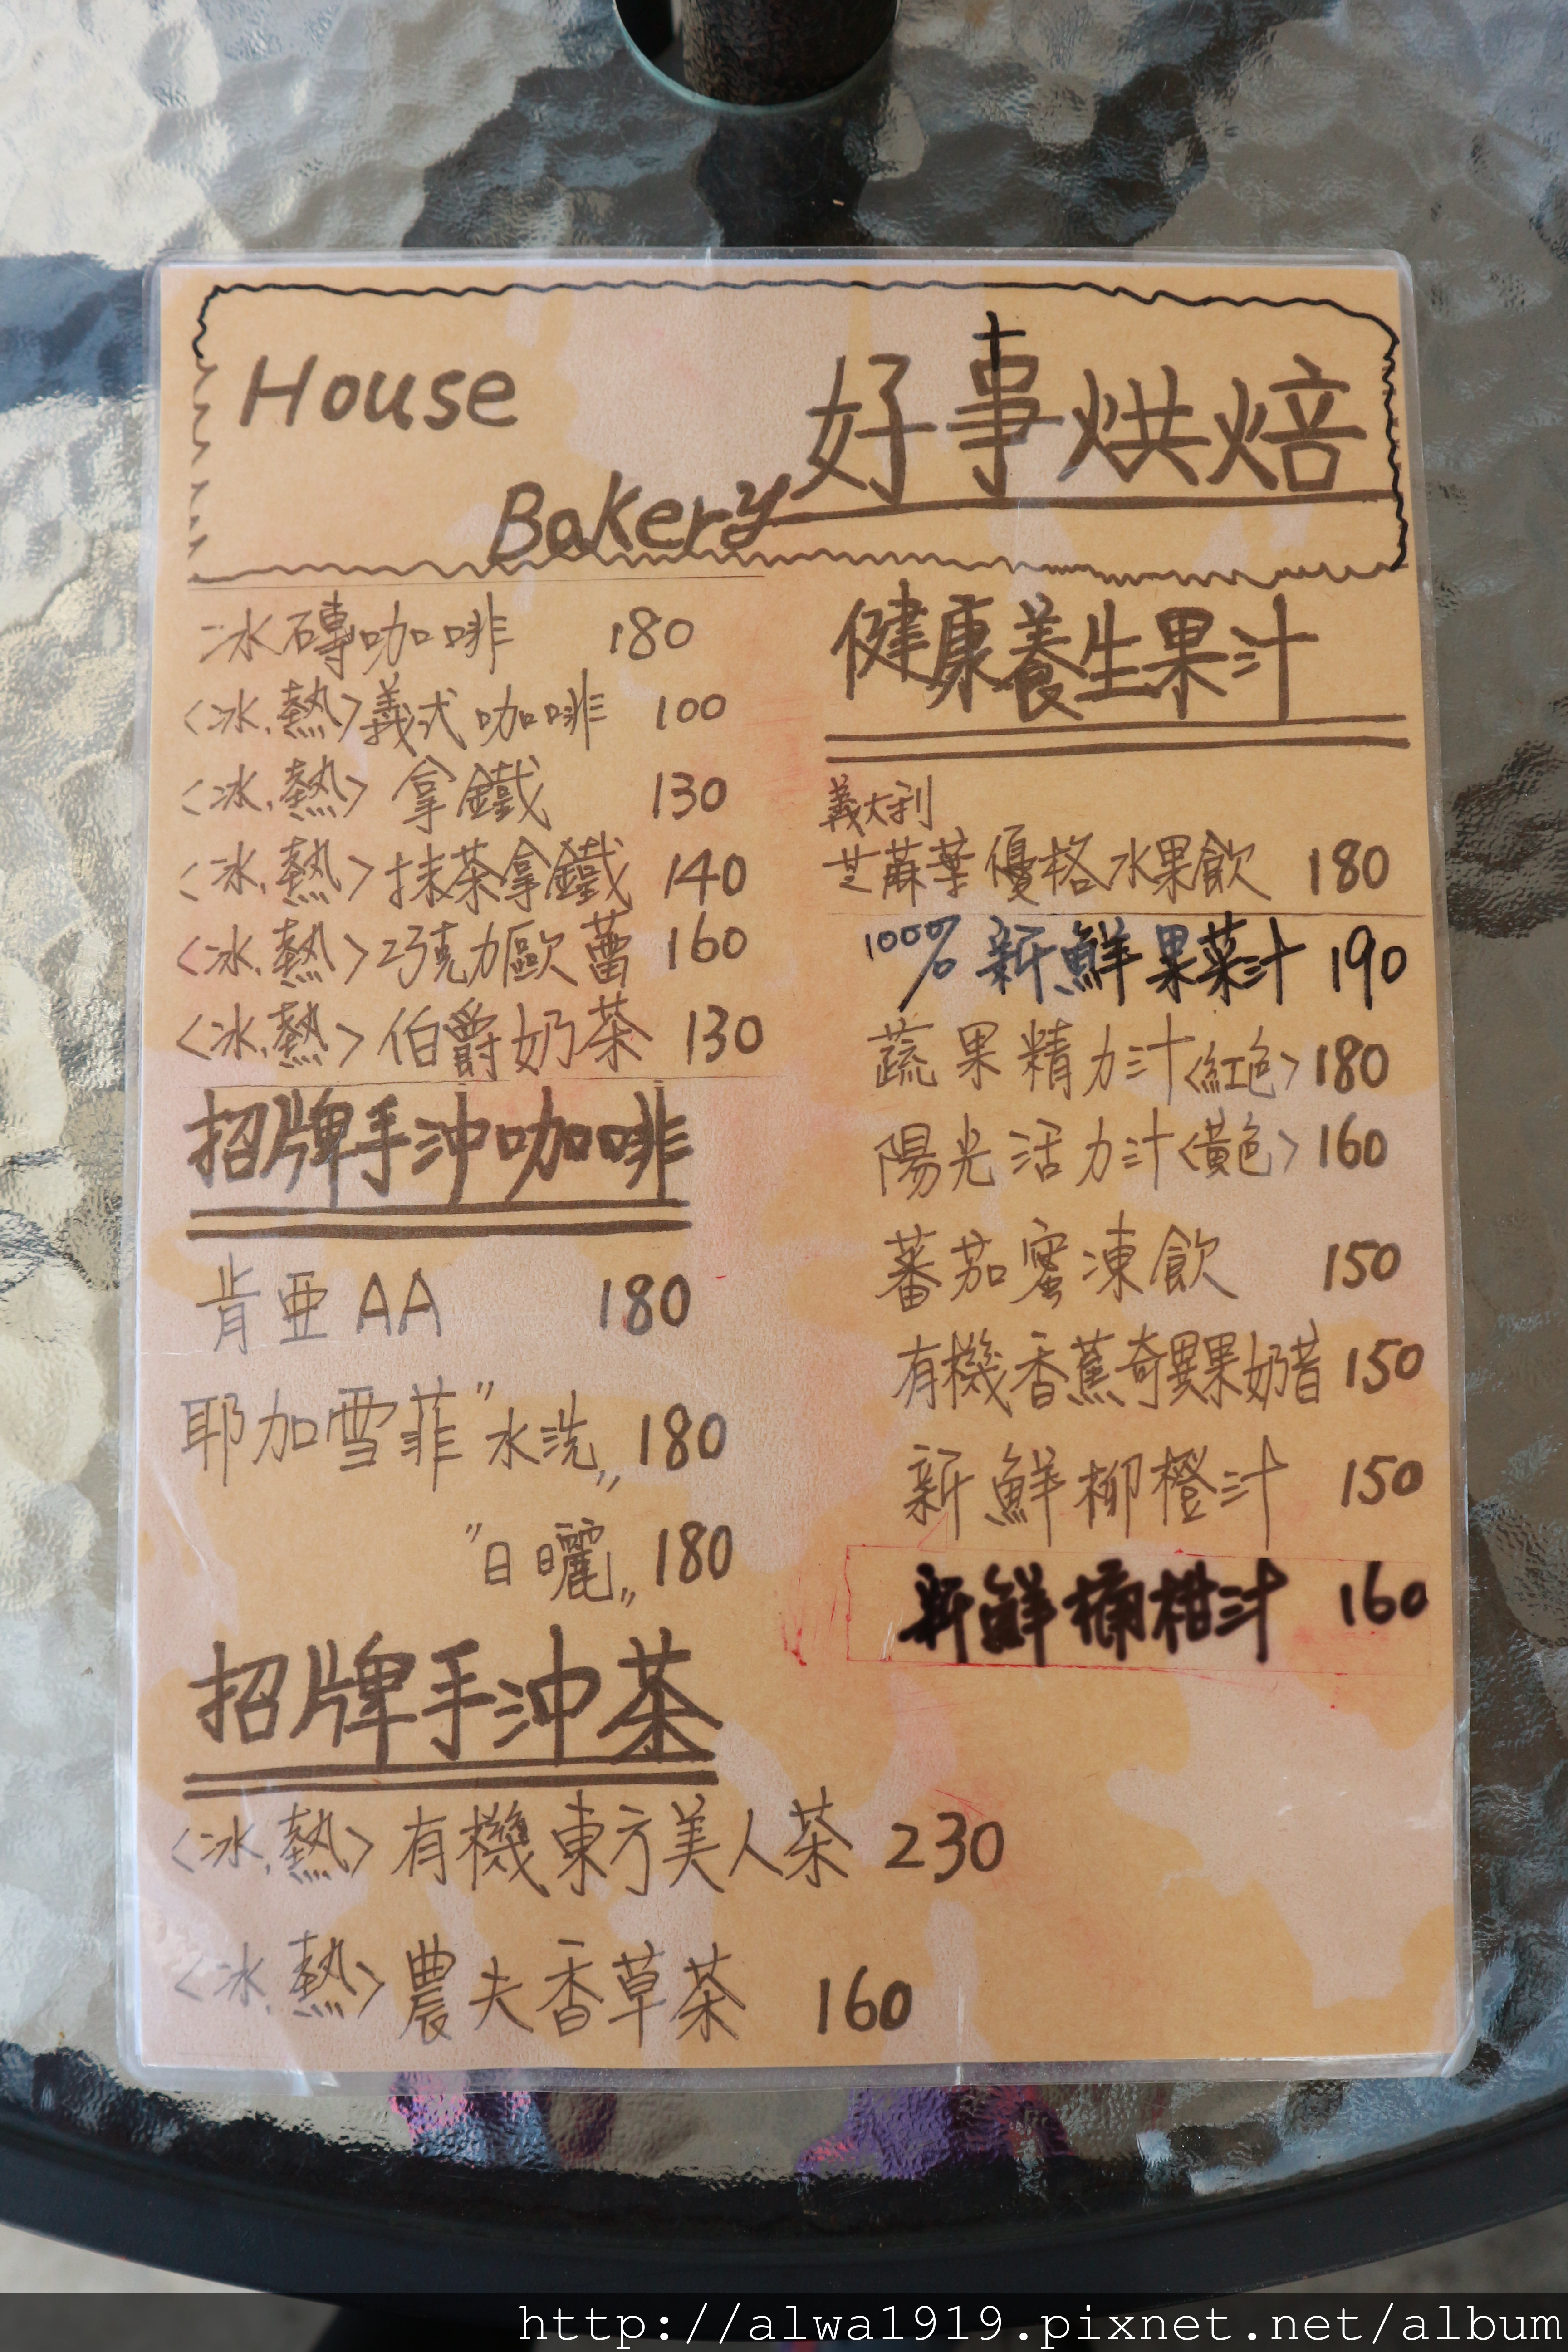 House
Bakery
好事烘焙
冰磚咖啡 180
<冰.熱>義式咖啡 100
<冰.熱>拿鐵 130
<冰.熱>抹茶拿鐵 140
<冰.熱>巧克力歐蕾 160
<冰.熱>伯爵奶茶 130
招牌手沖咖啡
肯亞AA 180
耶加雪菲"水洗" 180
"日曬" 180
招牌手沖茶
<冰.熱>有機東方美人茶 230
<冰.熱>農夫香草茶 160
健康養生果汁
義大利
芝蔴葉優格水果飲 180
100% 新鮮果菜汁 190
蔬果精力汁<紅色> 180
陽光活力汁<黃色> 160
蕃茄蜜凍飲 150
有機香蕉奇異果奶昔 150
新鮮柳橙汁 150
新鮮 柑汁 160
http://alwa1919.pixnet.net/album